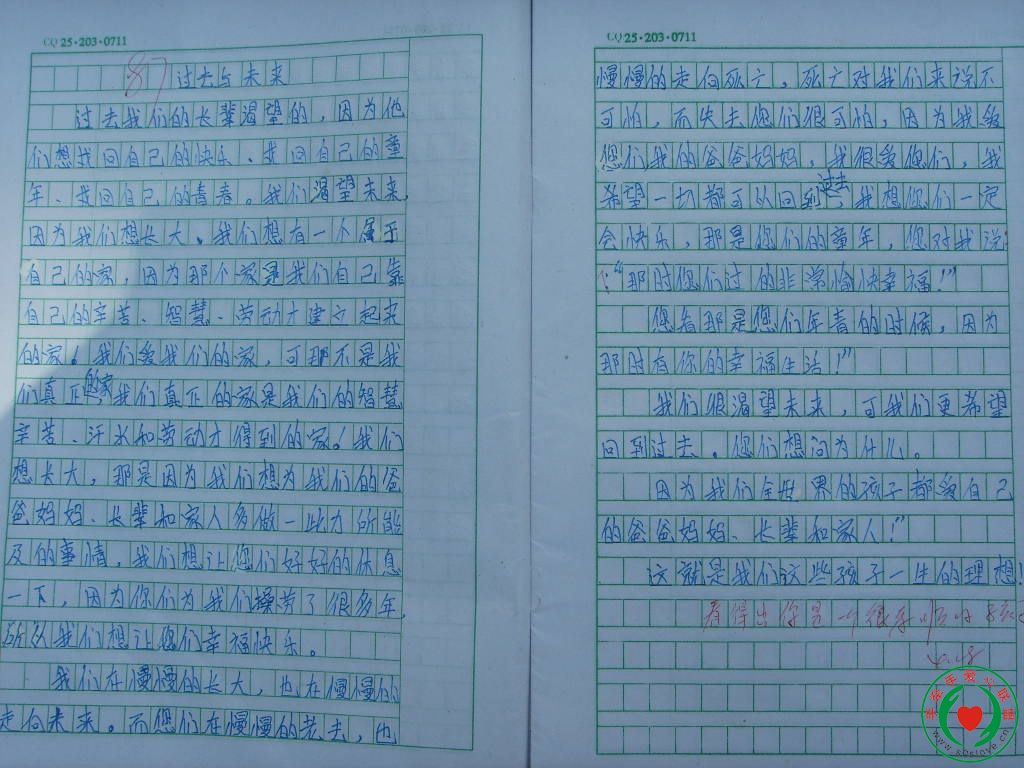 CQ 25·203·0711
87
过去与未来
过去我们的长辈渴望的,因为他
们想找回自己的快乐、找回自己的童
年、找回自己的青春。我们渴望未来,
因为我们想长大。我们想有一个属于
自己的家,因为那个家是我们自己靠
自己的辛苦、智慧、劳动才建立起来
的家。我们爱我们的家,可那不是我
们真正的家,我们真正的家是我们的智慧
辛苦、汗水和劳动才得到的家。我们
想长大,那是因为我们想为我们的爸
爸妈妈、长辈和家人多做一些力所能
及的事情,我们想让您们好好的休息
一下,因为你们为我们操劳了很多年,
所以我们想让您们幸福快乐。
我们在慢慢的长大,也在慢慢的
走向未来。而您们在慢慢的老去,也
CQ 25·203·0711
慢慢的走向死亡,死亡对我们来说不
可怕,而失去您们很可怕,因为我爱
您们我的爸爸妈妈,我很爱您们,我
希望一切都可以回到过去我想您们一定
会快乐,那是您们的童年,您对我说
:“那时您们过的非常愉快幸福!”
您看那是您们年青的时候,因为
那时有你的幸福生活!”
我们很渴望未来,可我们更希望
回到过去。您们想问为什么。
因为我们全世界的孩子都爱自己
的爸爸妈妈、长辈和家人!”
这就是我们这些孩子一生的理想!
看得出你是一个很孝顺的孩子
www.sbslove.cn